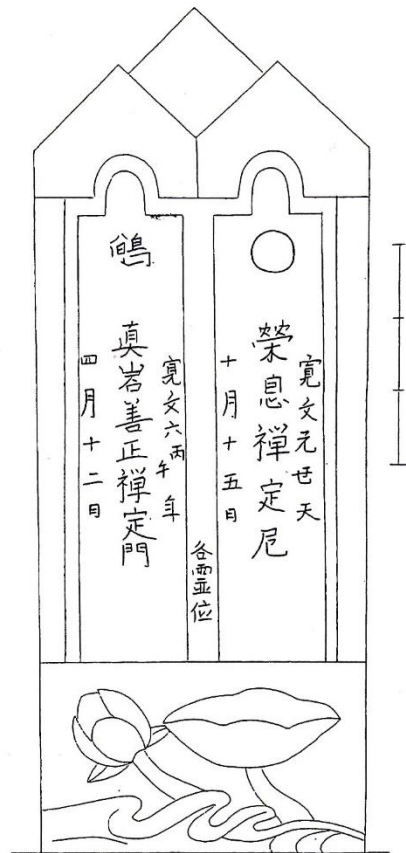 寛文元廿天
榮息禅定尼
十月十五日
各霊位
寛文六丙午年
真岩善正禅定門
四月十二日